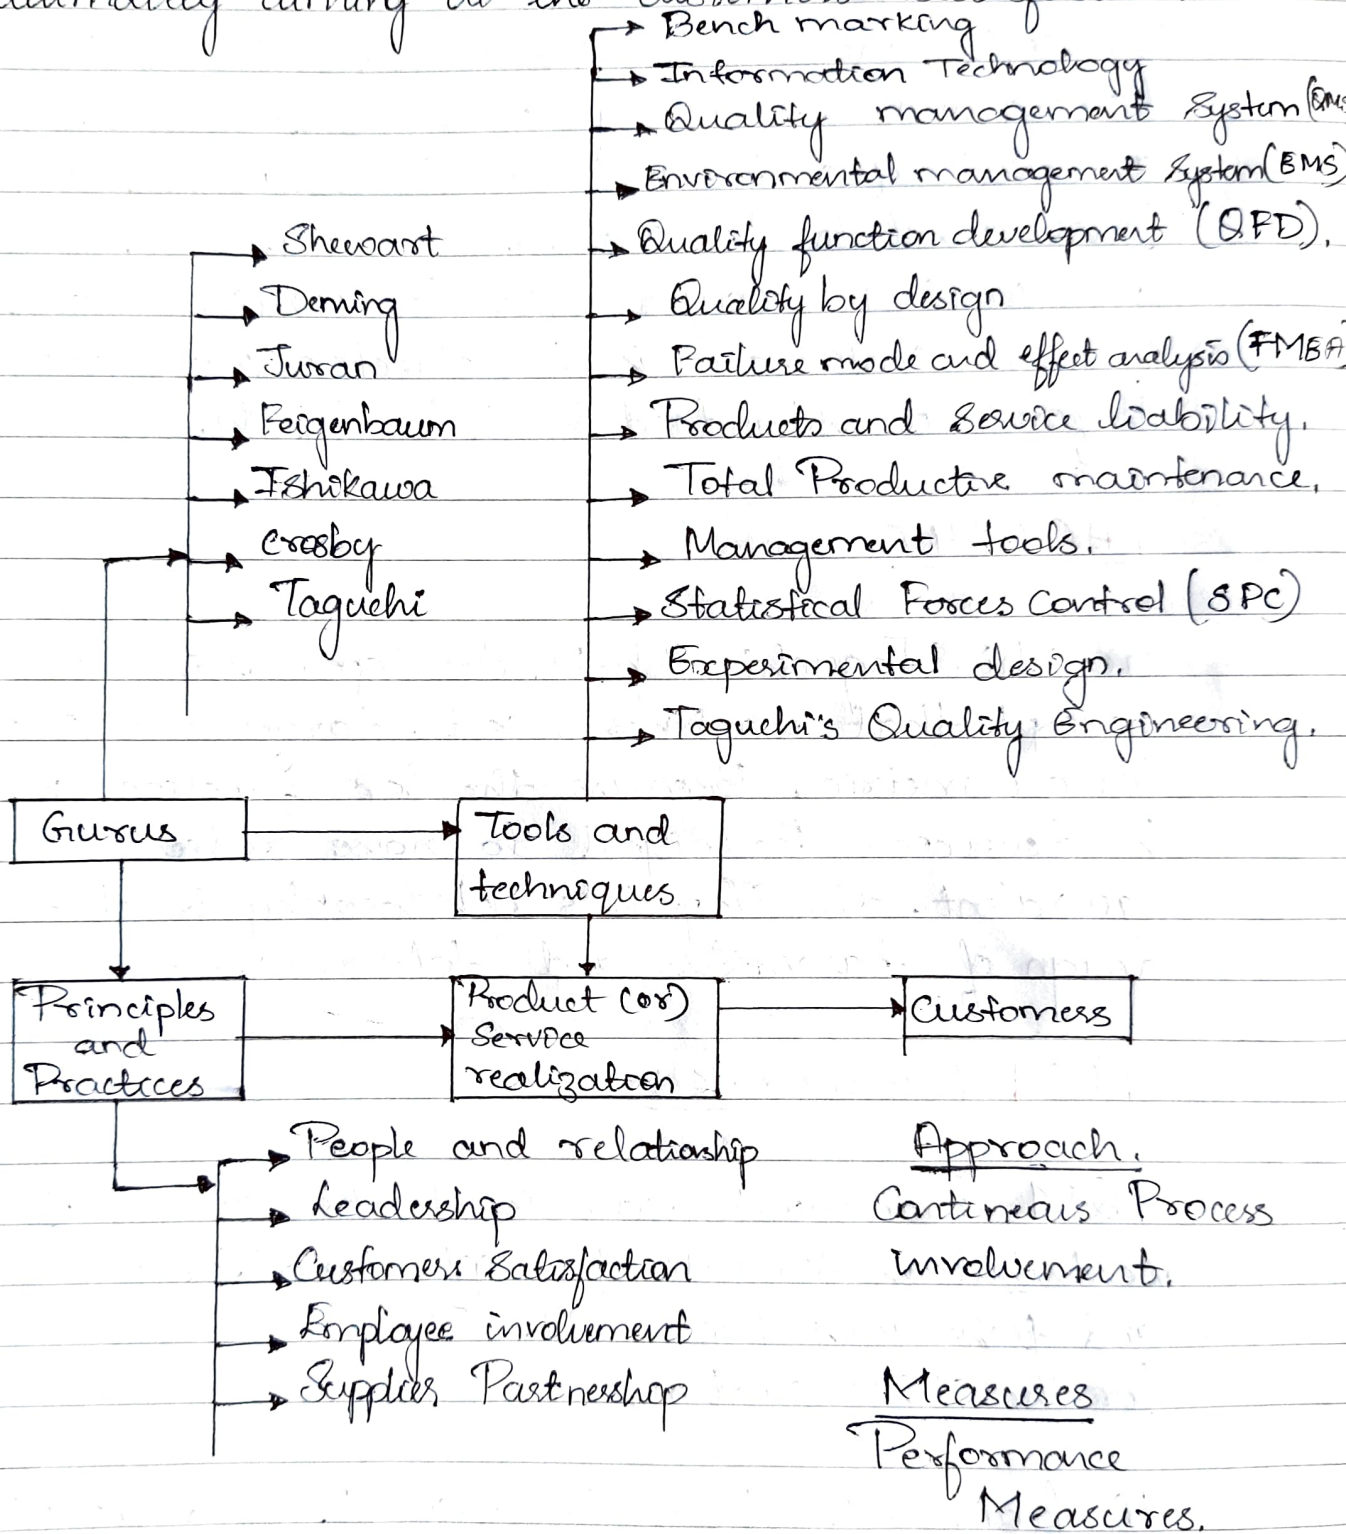 in the
Bench marking
Information Technology
Quality management System (QMS
Environmental management System (EMS)
Shewart
Quality function development (QFD).
Deming
Quality by design
Juran
Failure mode and effect analysis (FMEA)
Feigenbaum
Products and Service liability.
Ishikawa
Total Productive maintenance.
Crosby
Management tools.
Taguchi
Statistical Forces Control (SPC)
Experimental design.
Taguchi's Quality Engineering.
Gurus
Tools and
techniques.
Principles
and
Practices
Product (or)
Service
realization
Customers
People and relationship
Leadership
Customers Satisfaction
Employee involvement
Supplier Partnership
Approach.
Contineous Process
involvement.
Measures
Performance
Measures.